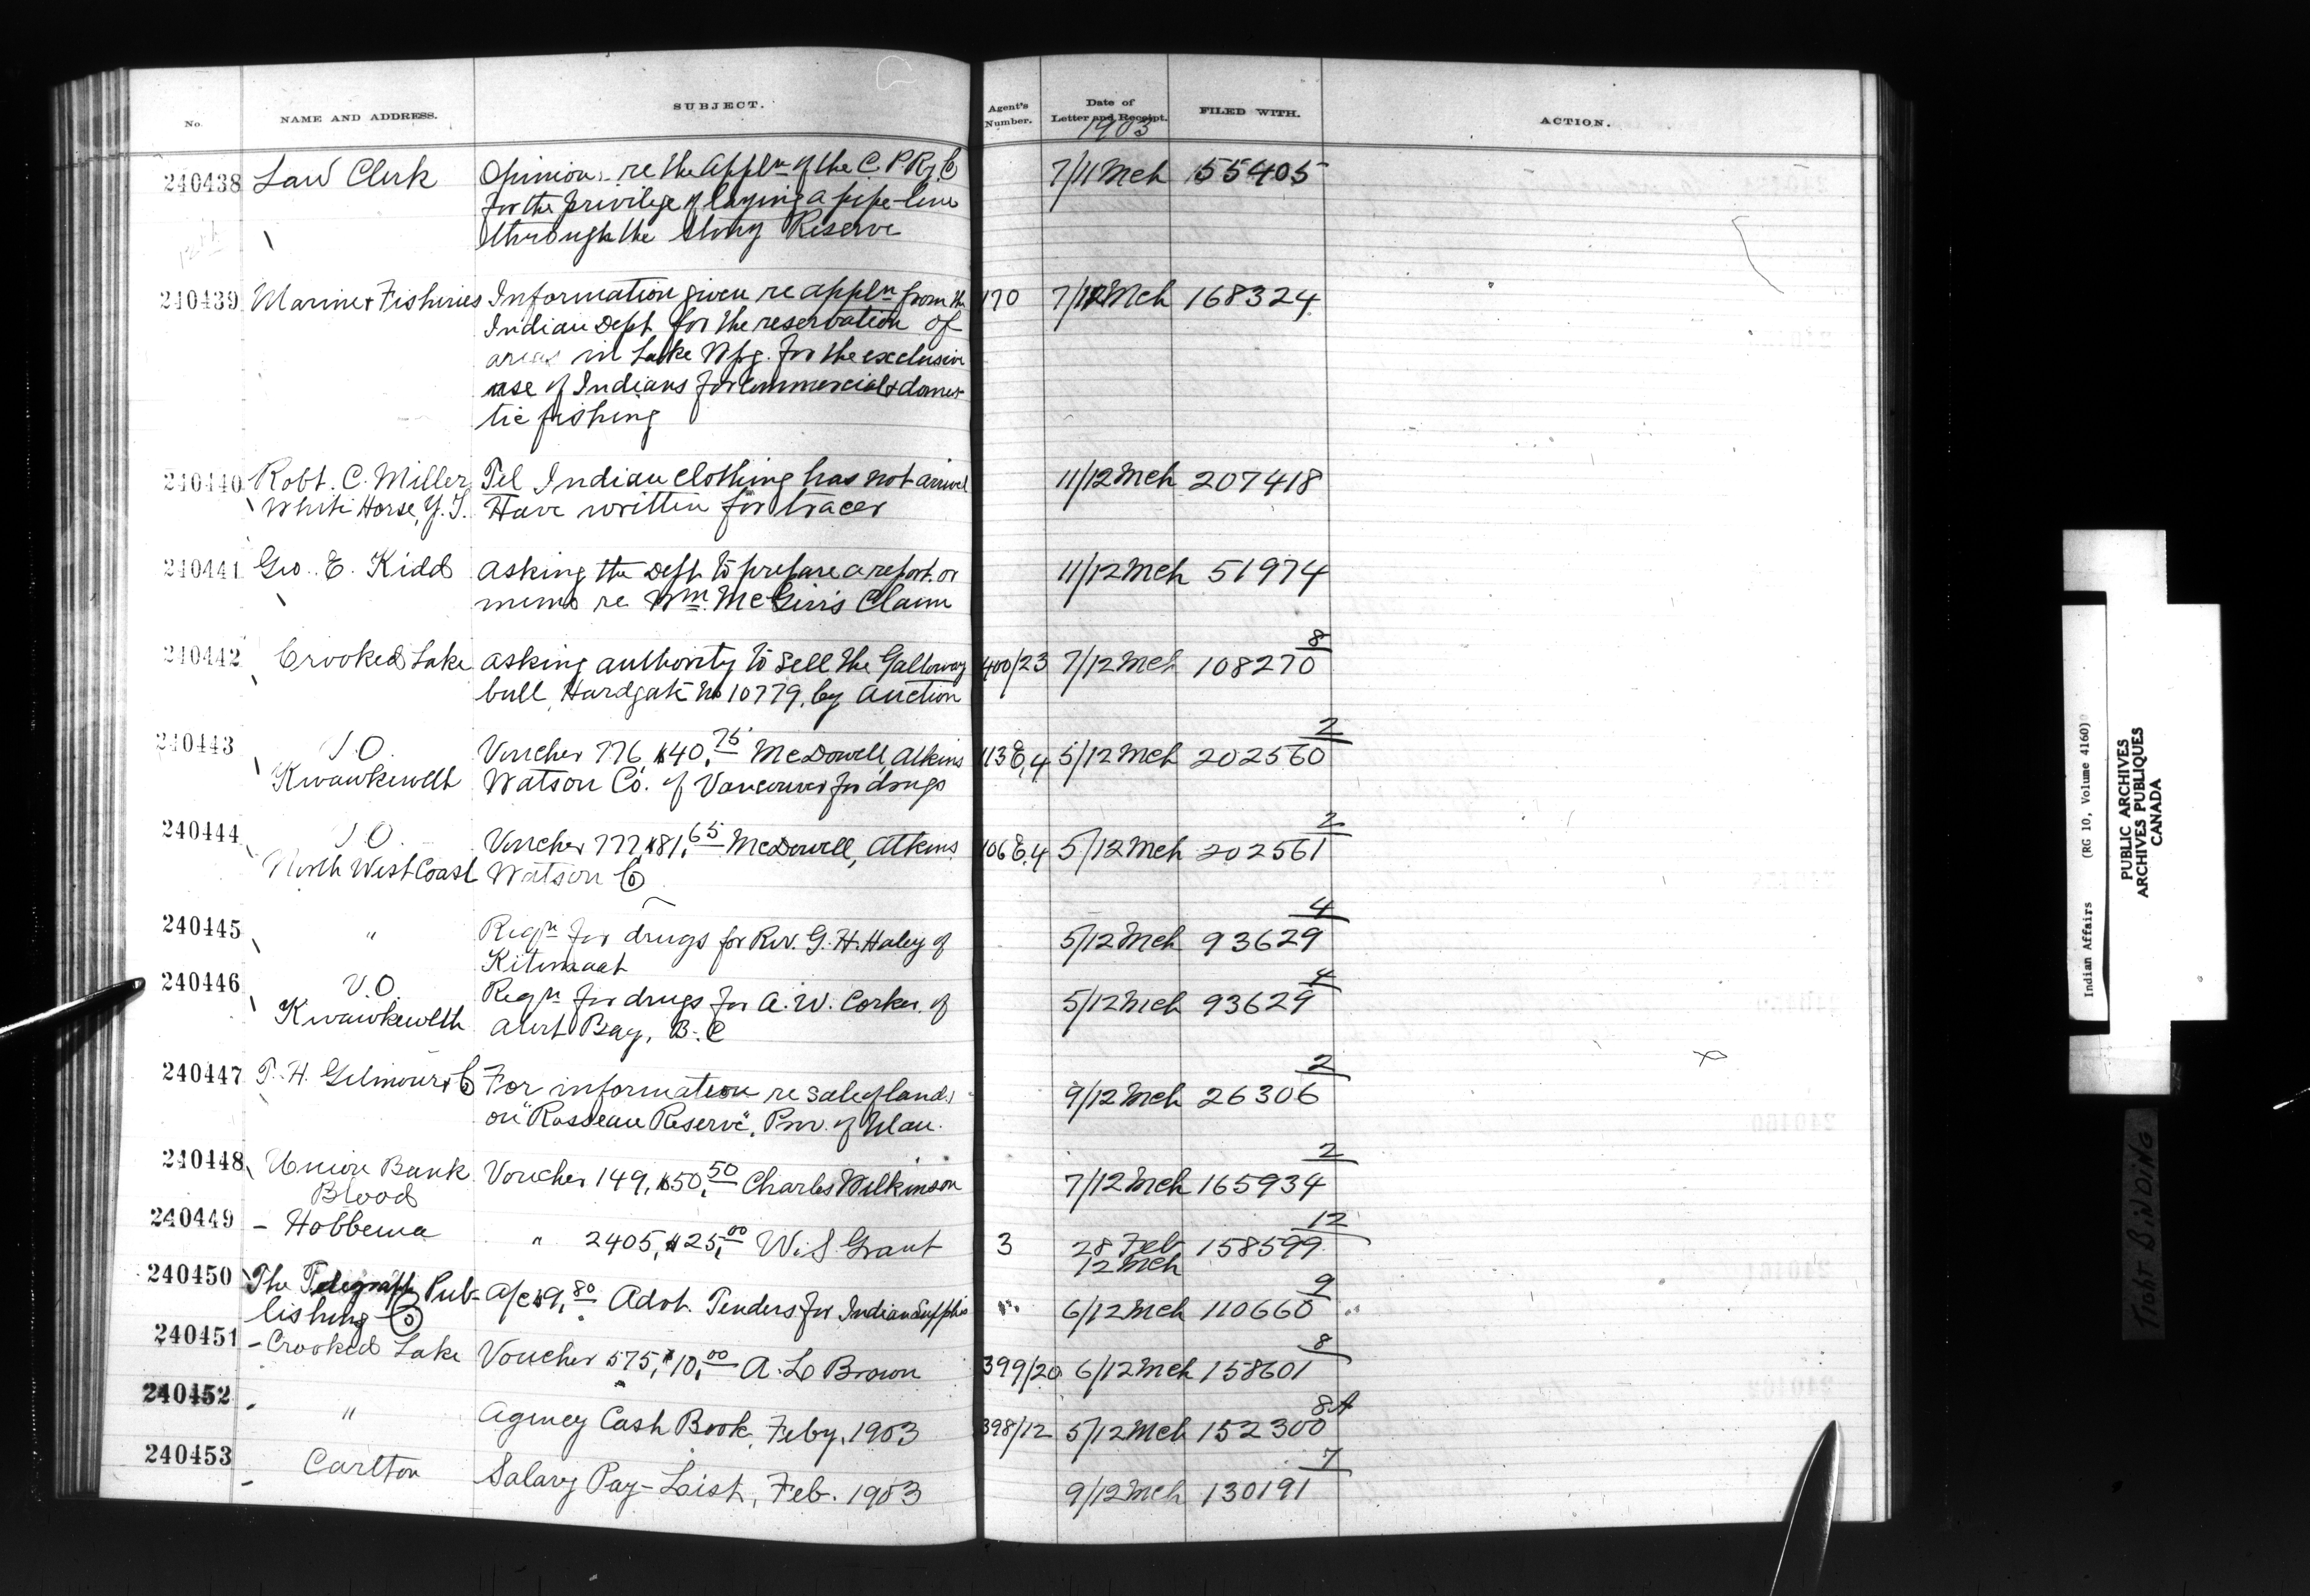 No. NAME AND ADDRESS. SUBJECT. Agent's Number. Date of Letter and Receipt. FILED WITH. ACTION.
1903
240438 Law Clerk Opinion re the Appln of the C. P. Ry. Co 7/11 Mch 155405
for the privilege of laying a pipe-line
through the Stony Reserve
240439 Marine & Fisheries Information given re appln from the 170 7/12 Mch 168324
Indian Dept. for the reservation of
areas in Lake Wpg. for the exclusive
use of Indians for commercial & domes-
tic fishing
240440 Robt. C. Miller Tel Indian clothing has not arrived 11/12 Mch 207418
White Horse, Y. T. Have written for tracer
240441 Geo. E. Kidd Asking the Dept. to prepare a report or 11/12 Mch 51974
memo re Wm. McGirr's Claim
240442 Crooked Lake Asking authority to sell the Galloway 400/23 7/12 Mch 108270 8
bull, Hardgate No 10779, by Auction
240443 V.O. Voucher 776, $40.75 McDowell, Atkins 113 E.4 5/12 Mch 202560 2
Kwawkewlth Watson Co. of Vancouver for drugs
240444 V.O. Voucher 777, $81.65 McDowell, Atkins 106 E.4 5/12 Mch 202561 2
North West Coast Watson Co
240445 " Reqn for drugs for Rev. G. H. Haley of 5/12 Mch 93629 4
Kitimaat
240446 V.O. Reqn for drugs for A. W. Corker of 5/12 Mch 93629 4
Kwawkewlth Alert Bay, B. C
240447 T. H. Gilmour & Co For information re sale of lands 9/12 Mch 26306 2
on "Rosseau Reserve", Prov. of Man.
240448 Union Bank Voucher 149, $50.50 Charles Wilkinson 7/12 Mch 165934 2
Blood
240449 - Hobbema " 2405, $25.00 W. S. Grant 3 28 Feb 158599 12
12 Mch
240450 The Telegraph Pub- A/c $9.80 Advt. Tenders for Indian Supplies " 6/12 Mch 110660 9
lishing Co
240451 - Crooked Lake Voucher 575, $10.00 A. L. Brown 399/20 6/12 Mch 158601 8
240452 " Agency Cash Book, Feby, 1903 398/12 5/12 Mch 152300 8A
240453 - Carlton Salary Pay-List, Feb. 1903 9/12 Mch 130191 7
Indian Affairs (RG 10, Volume 4160)
PUBLIC ARCHIVES
ARCHIVES PUBLIQUES
CANADA
TIGHT BINDING